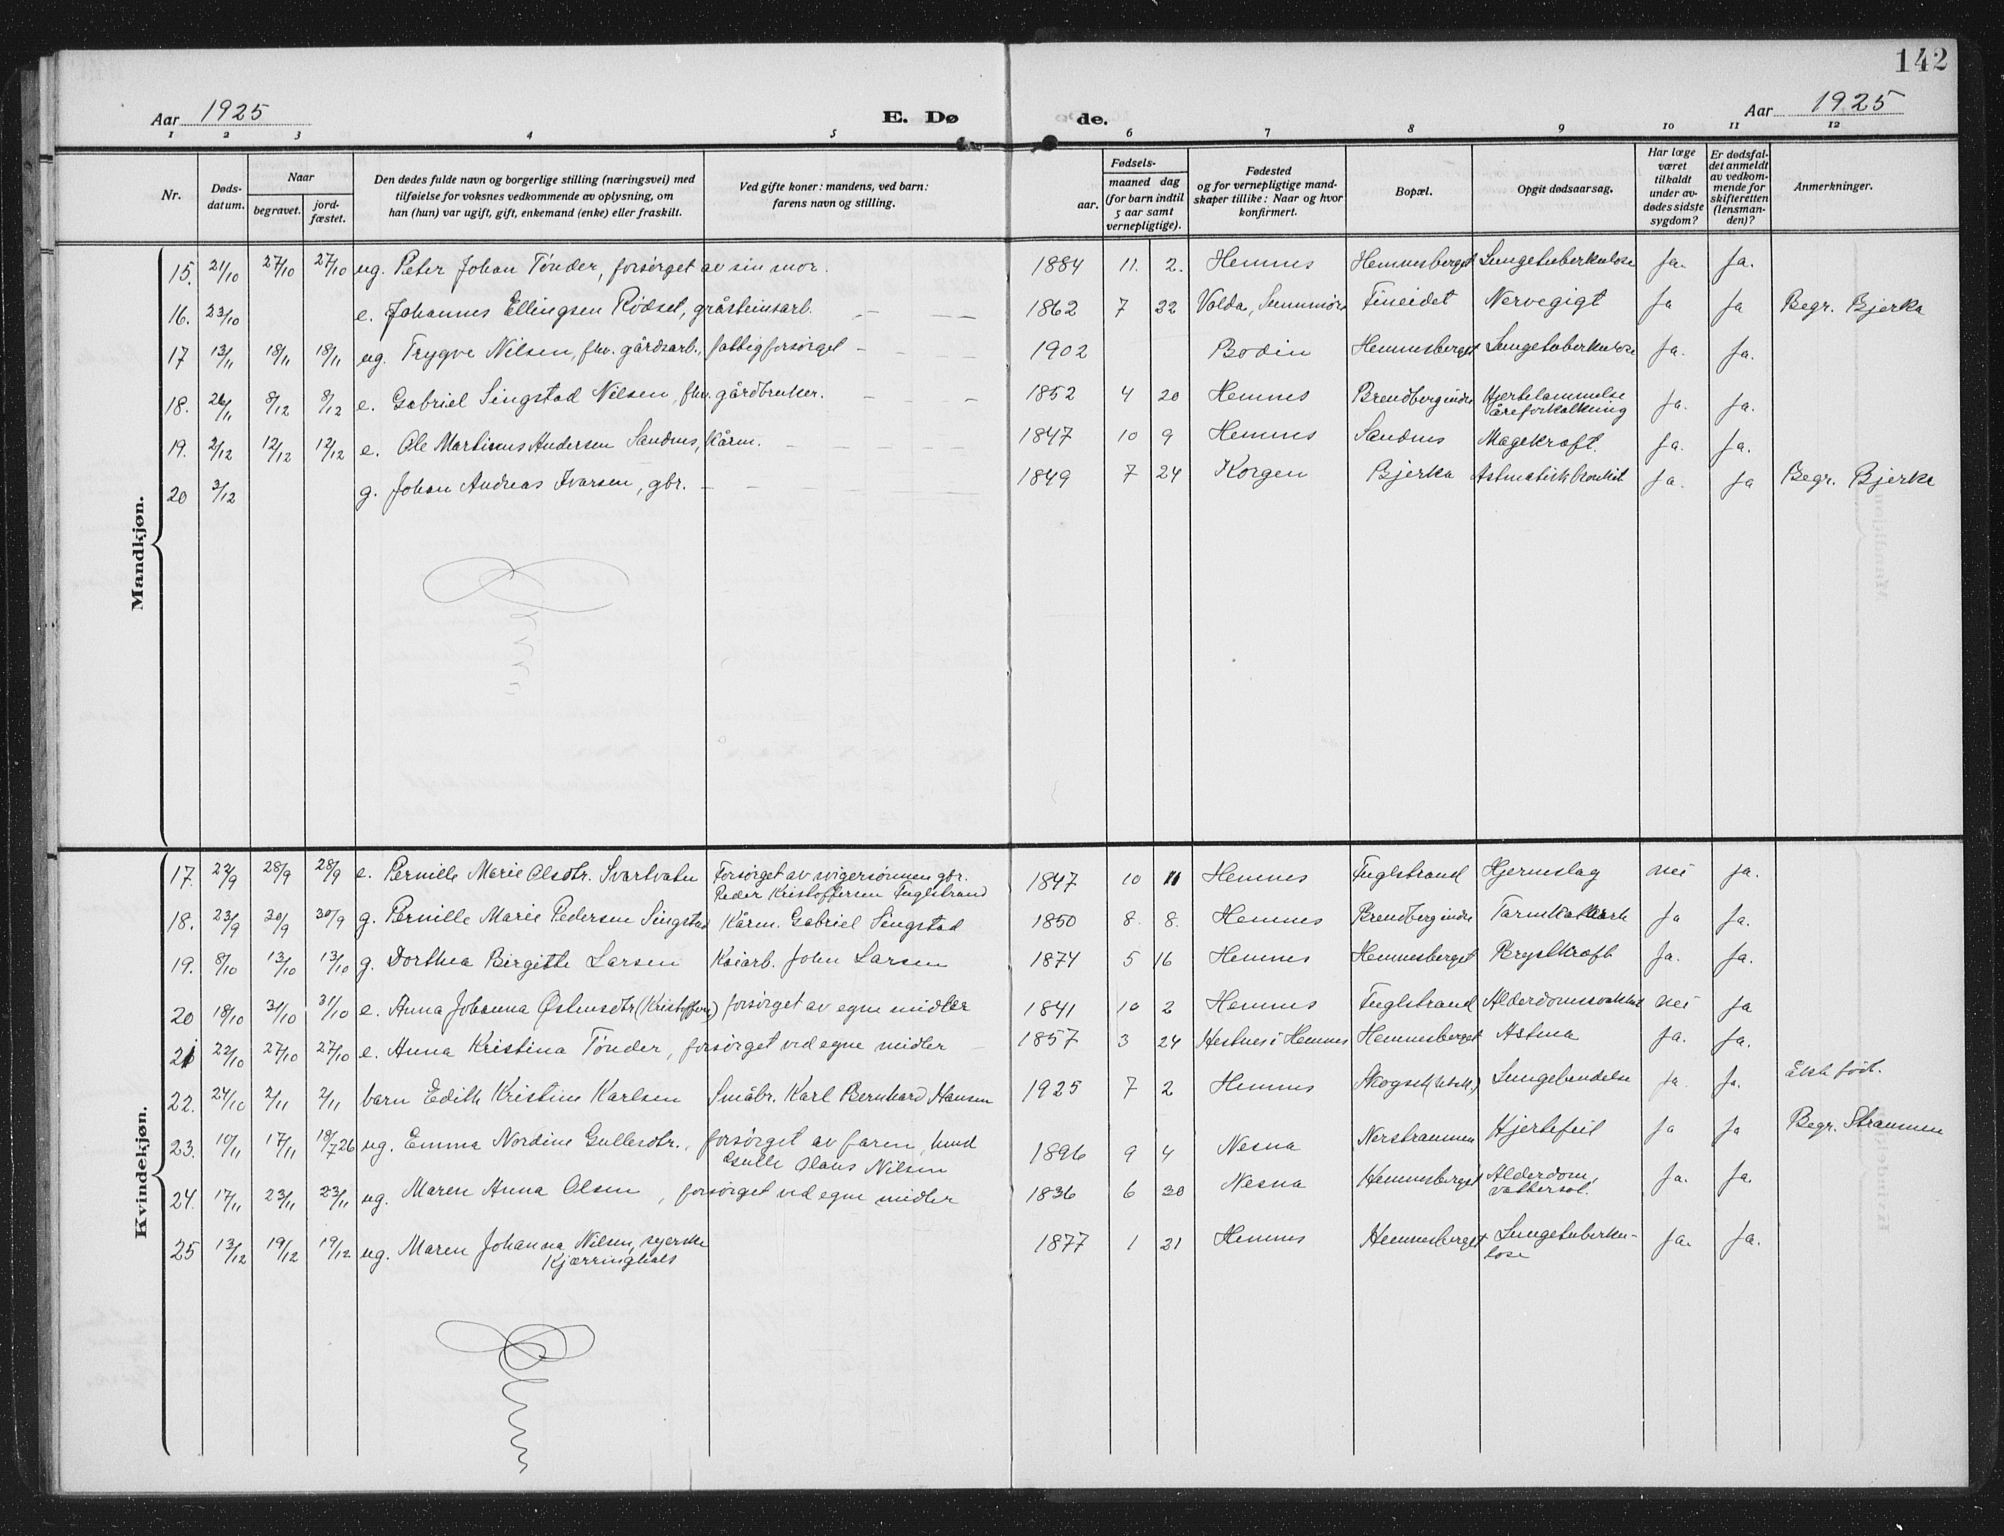 142
Aar 1925 E. Dø de. Aar 1925
1 2 3 4 5 6 7 8 9 10 11 12
Nr. Døds-datum. Naar begravet. jord-fæstet. Den dødes fulde navn og borgerlige stilling (næringsvei) med tilføielse for voksnes vedkommende av oplysning, om han (hun) var ugift, gift, enkemand (enke) eller fraskilt. Ved gifte koner: mandens, ved barn: farens navn og stilling. Fødsels- aar. maaned dag (for barn indtil 5 aar samt vernepligtige). Fødested og for vernepligtige mandskaper tillike: Naar og hvor konfirmert. Bopæl. Opgit dødsaarsag. Har læge været tilkaldt under avdødes sidste sygdom? Er dødsfaldet anmeldt av vedkommende for skifteretten (lensmanden)? Anmerkninger.
Mandkjøn.
15. 21/10 27/10 27/10 ug. Peter Johan Tønder, forsørget av sin mor. 1884 11. 2. Hemnes Hemnesberget Lungetuberkulose Ja. Ja.
16. 23/10 e. Johannes Ellingsen Rødset, gråsteinsarb. — — — 1862 7 22 Volda, Sunnmøre Fineidet Nervegigt Ja Ja Begr. Bjerka
17 13/11 18/11 18/11 ug. Trygve Nilsen, fhv. gårdsarb., fattigforsørget — — — — 1902 Bodin Hemnesberget Lungetuberkulose Ja. Ja.
18. 26/11 8/12 8/12 e. Gabriel Singstad Nilsen, fhv. gårdbruker. — — — 1852 4 20 Hemnes Brendberg indre Hjertelammelse åreforkalkning Ja. Ja.
19. 2/12 12/12 12/12 e. Ole Martinus Andersen Sandnes, kårm. — — — — 1847 10 9 Hemnes Sandnes Magekræft. Ja. Ja.
20 3/12 g. Johan Andreas Ivarsen, gbr. — — — — — 1849 7 24 Korgen Bjerka Astmatisk bronkit Ja. Ja Begr. Bjerka
Kvindekjøn.
17. 22/9 28/9 28/9 e. Pernille Marie Olsdtr. Svartvatn Forsørget av svigersønnen gbr. Peder Kristoffersen Fuglstrand 1847 10 11 Hemnes Fuglstrand Hjerneslag nei Ja.
18. 23/9 30/9 30/9 g. Pernille Marie Pedersen Singstad Kårm. Gabriel Singstad 1850 8. 8. Hemnes Brendberg indre Ja Ja.
19. 8/10 13/10 13/10 g. Dorthea Birgitte Larsen Kaiarb. John Larsen 1874 5 16 Hemnes Hemnesberget Brystkræft Ja. Ja.
20 18/10 31/10 31/10 e. Anna Johanna Østensdtr (Kristoffers) forsørget av egne midler 1841 10 2 Hemnes Fuglstrand Alderdomssvakhet nei Ja
21 22/10 27/10 27/10 e. Anna Kristina Tønder, forsørget ved egne midler — 1857 3 24 Hestnes i Hemnes Hemnesberget Astma Ja. Ja.
22. 24/10 2/11 2/11 barn Edith Kristine Karlsen Småbr. Karl Bernhard Hansen 1925 7 2 Hemnes Lungebetendelse Ja. Ja. Ekte født.
23. 10/11 17/11 18/7 26 ug. Emma Nordine Gullesdtr., forsørget av faren, Gulle Olaus Nilsen 1896 9 4 Nesna Nerstraumen Hjertefeil Ja Ja Begr. Straumen
24. 17/11 23/11 23/11 ug. Maren Anna Olsen, forsørget ved egne midler 1836 6 30 Nesna Hemnesberget Alderdom, vattersot. Ja. Ja.
25 13/12 19/12 19/12 ug. Maren Johanna Nilsen, syerske Kjærringhals 1877 1 21 Hemnes Hemnesberget Lungetuberkulose Ja. Ja.